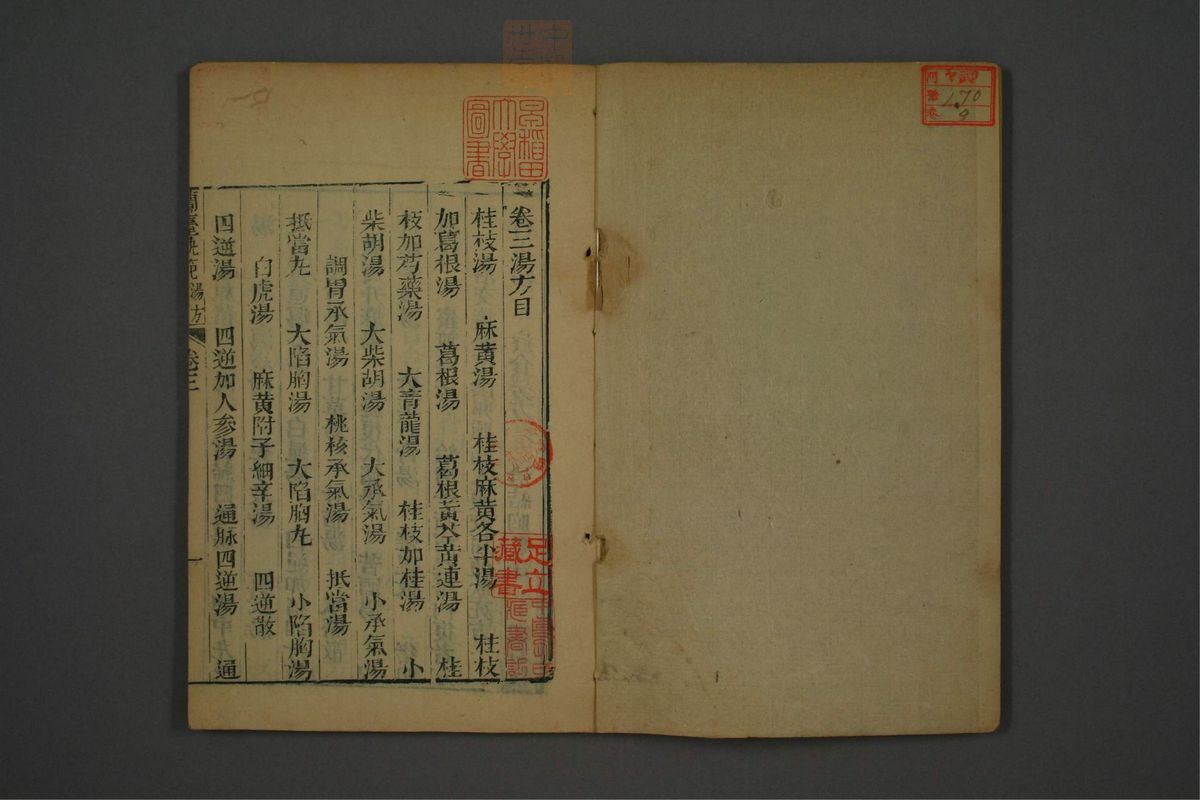 卷三湯方目
桂枝湯 麻黄湯 桂枝麻黄各半湯 桂枝
加葛根湯 葛根湯 葛根黄芩黄連湯 桂
枝加芍藥湯 大青龍湯 桂枝加桂湯 小
柴胡湯 大柴胡湯 大承氣湯 小承氣湯
調胃承氣湯 桃核承氣湯 抵當湯
抵當丸 大陷胸湯 大陷胸丸 小陷胸湯
白虎湯 麻黄附子細辛湯 四逆散
四逆湯 四逆加人参湯 通脉四逆湯 通
蘭臺軌範湯方 卷三 一
早稻田大學圖書
足立藏書
門 號 卷
170
9